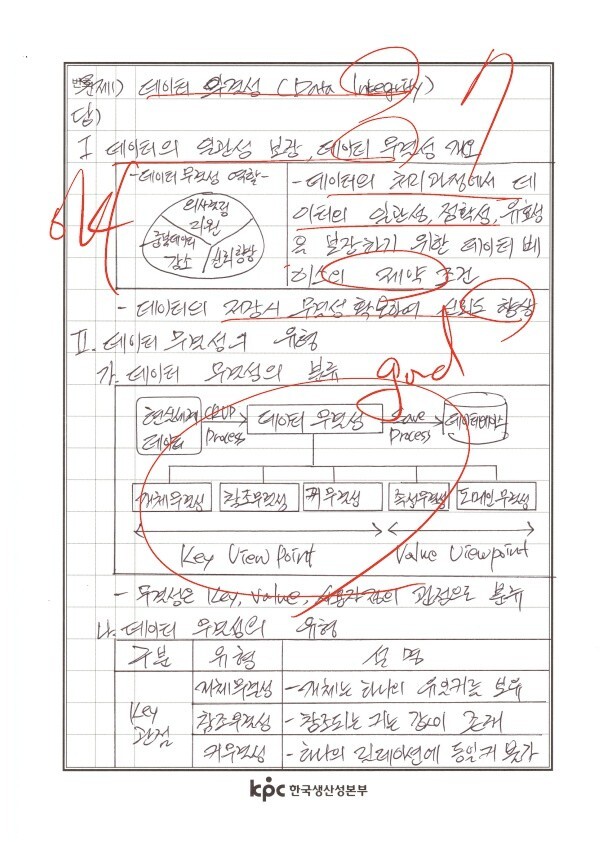 문제1) 데이터 무결성 (Data Integrity)
답)
I 데이터의 일관성 보장, 데이터 무결성 개요
-데이터 무결성 역할-
의사결정
지원
불량데이터
감소
신뢰향상
- 데이터의 처리과정에서 데
이터의 일관성, 정확성, 유효성
을 보장하기 위한 데이터 베
이스의 제약 조건
- 데이터의 저장시 무결성 확보하여 신뢰도 향상
good
II. 데이터 무결성의 유형
가. 데이터 무결성의 분류
현실세계
데이터
Process
데이터 무결성
Save
Process
데이터베이스
개체무결성
참조무결성
키 무결성
속성무결성
도메인무결성
Key ViewPoint
Value Viewpoint
- 무결성은 Key, Value, 사용자 정의 관점으로 분류
나. 데이터 무결성의 유형
구분 유형 설명
Key
관점
개체무결성 - 개체는 하나의 유일키를 보유
참조무결성 - 참조되는 키는 값이 존재
키무결성 - 하나의 릴레이션에 동일키 불가
kpc 한국생산성본부